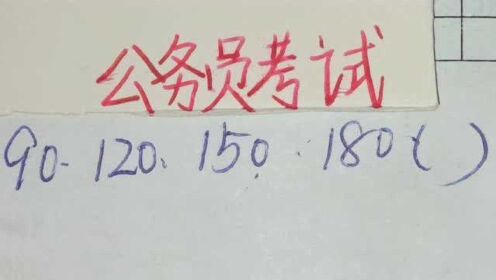 公务员考试
90. 120、150. 180( )